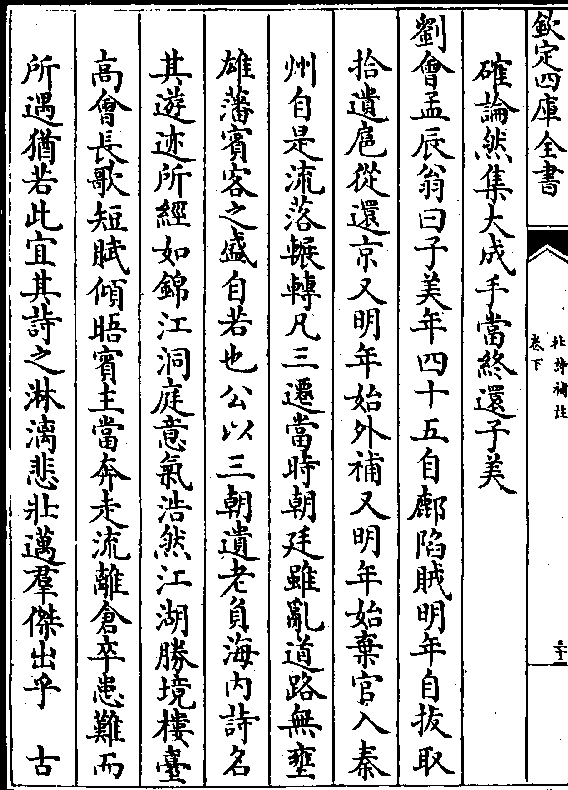 欽定四庫全書
杜詩補註
卷下
確論然集大成手當終還子美
劉會孟辰翁曰子美年四十五自鄜陷賊明年自拔取
拾遺扈從還京又明年始外補又明年始棄官入秦
州自是流落輾轉凡三遷當時朝廷雖亂道路無壅
雄藩賓客之盛自若也公以三朝遺老負海內詩名
其遊迹所經如錦江洞庭意氣浩然江湖勝境樓臺
高會長歌短賦傾晤賓主當奔走流離倉卒患難而
所遇猶若此宜其詩之淋漓悲壯邁羣傑出乎　古